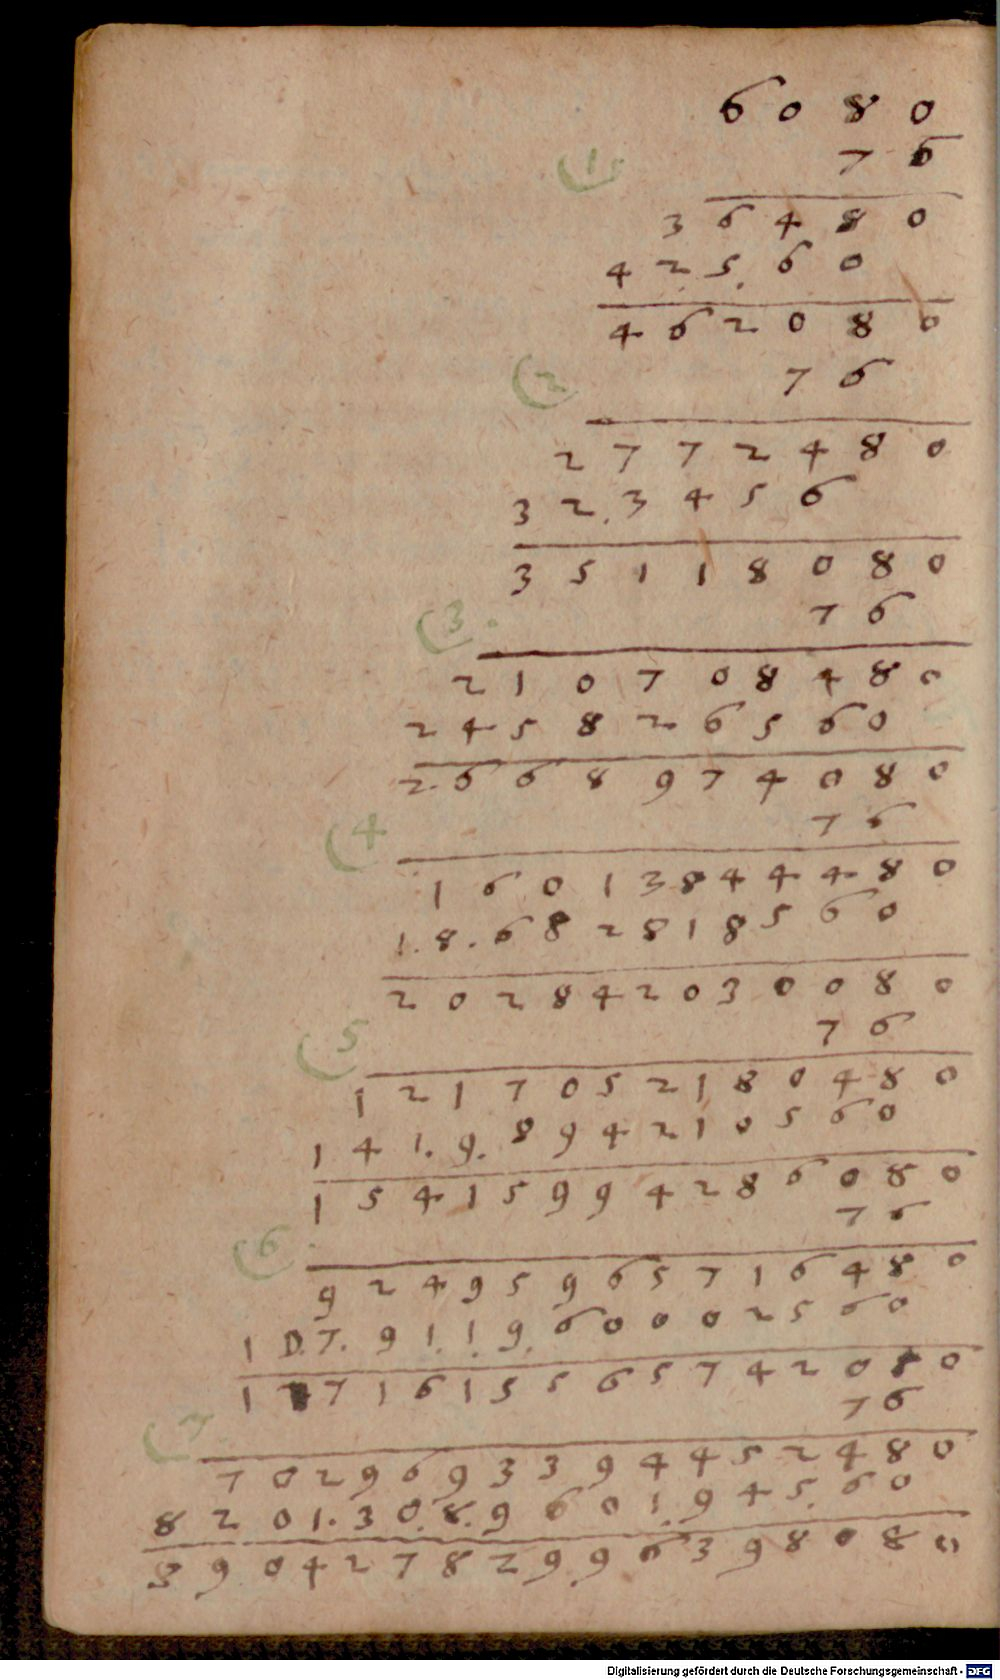 6 0 8 0
(1) 7 6
3 6 4 8 0
4 2 5. 6 0
4 6 2 0 8 0
(2 7 6
2 7 7 2 4 8 0
3 2. 3 4 5 6
3 5 1 1 8 0 8 0
(3. 7 6
2 1 0 7 0 8 4 8 0
2 4 5 8 2 6 5 6 0
2. 6 6 8 9 7 4 0 8 0
(4 7 6
1 6 0 1 3 8 4 4 4 8 0
1. 8. 6 8 2 8 1 8 5 6 0
2 0 2 8 4 2 0 3 0 0 8 0
(5 7 6
1 2 1 7 0 5 2 1 8 0 4 8 0
1 4 1. 9. 8 9 4 2 1 0 5 6 0
1 5 4 1 5 9 9 4 2 8 6 0 8 0
(6. 7 6
9 2 4 9 5 9 6 5 7 1 6 4 8 0
1 0. 7. 9 1. 1. 9. 6 0 0 0 2 5 6 0
1 1 7 1 6 1 5 5 6 5 7 4 2 0 8 0
(7. 7 6
7 0 2 9 6 9 3 3 9 4 4 5 2 4 8 0
8 2 0 1. 3 0. 8. 9 6 0 1. 9 4 5. 6 0
8 9 0 4 2 7 8 2 9 9 6 3 9 8 0 8 0
Digitalisierung gefördert durch die Deutsche Forschungsgemeinschaft - DFG